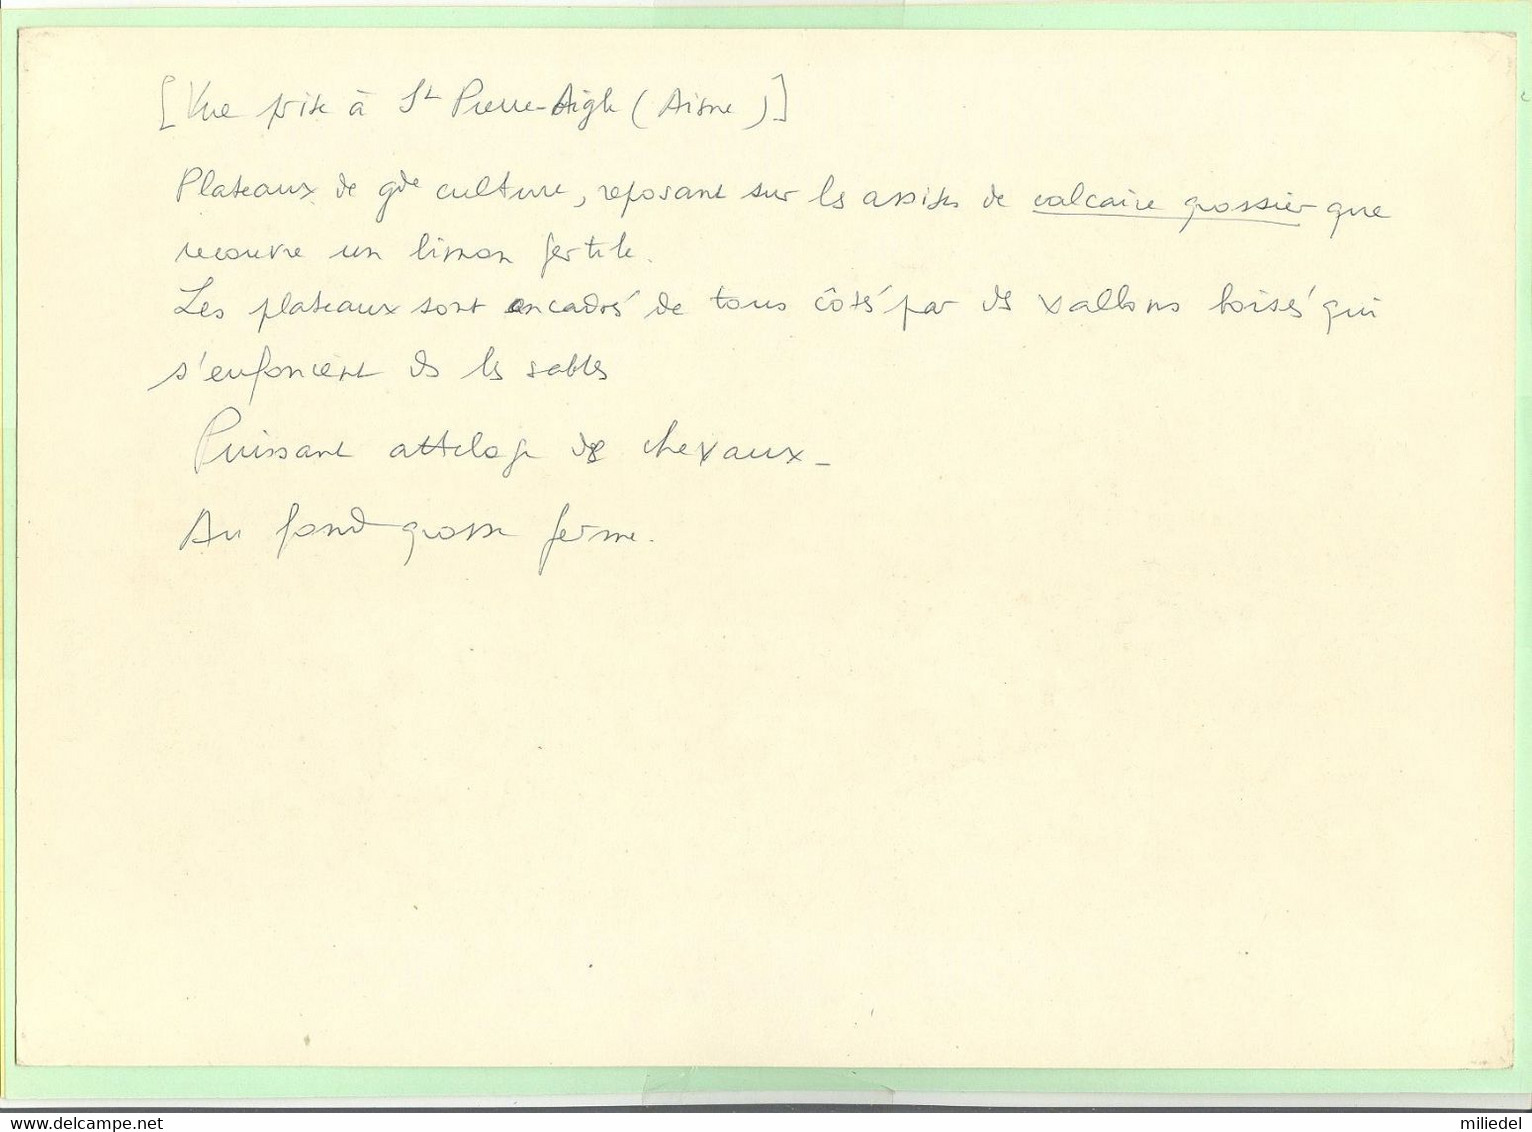 [Vue prise à St Pierre-Aigle (Aisne)]
Plateaux de gde culture, reposant sur les assises de calcaire grossier que
recouvre un limon fertile.
Les plateaux sont encadrés de tous côtés par des vallons boisés qui
s'enfoncent ds les sables
Puissant attelage de chevaux –
Au fond grosse ferme.
www.delcampe.net
miliedel